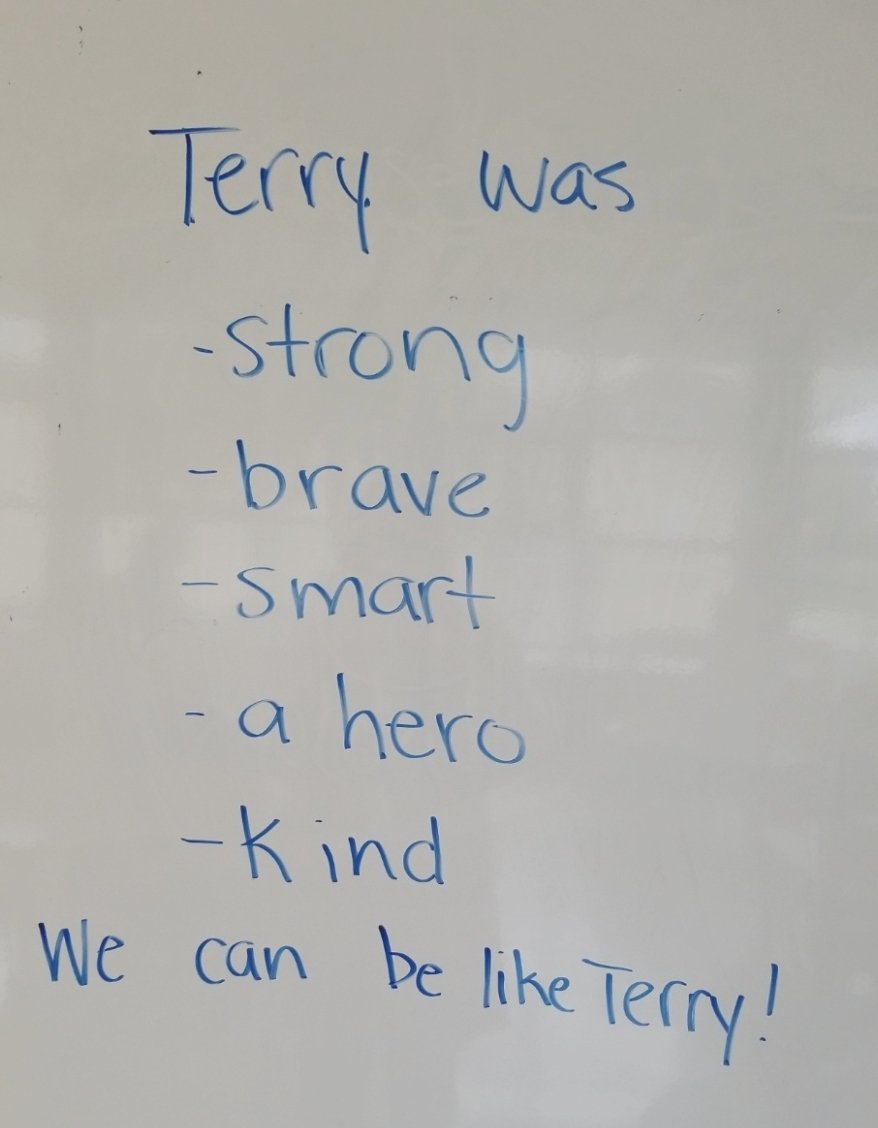 Terry was
-strong
-brave
-smart
-a hero
-Kind
We can be like Terry!